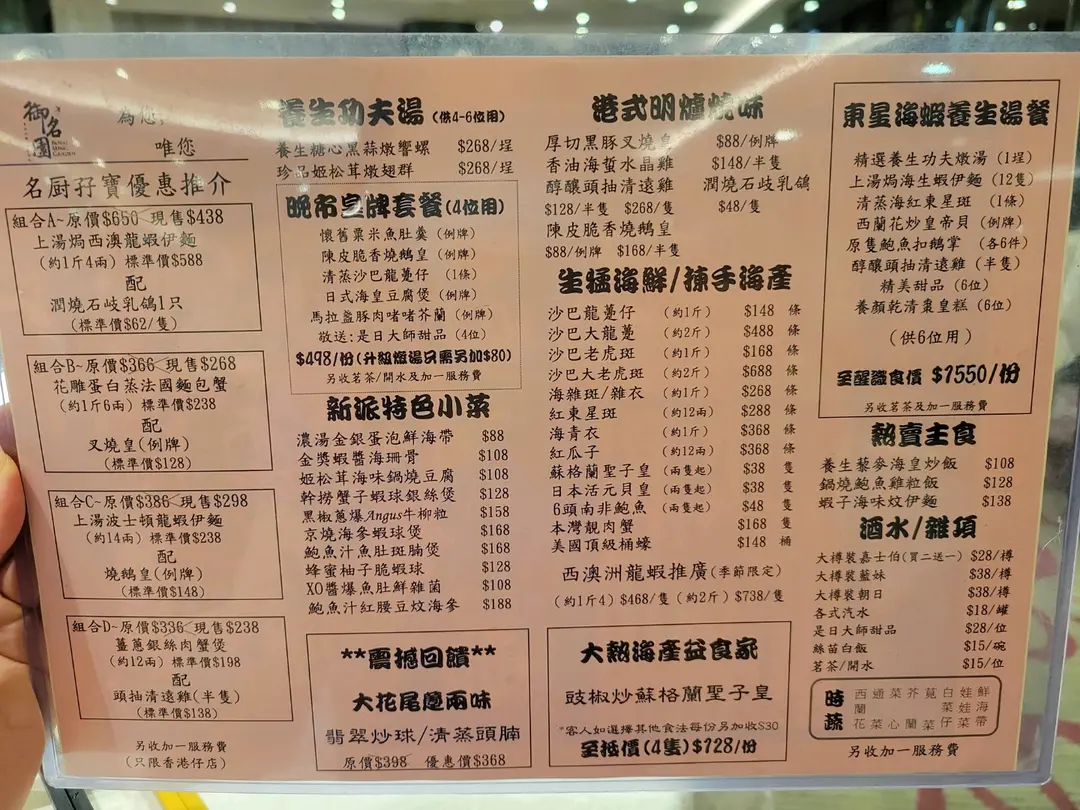 御名園
為您
唯您
名厨孖寶優惠推介
組合A~原價$650 現售$438
上湯焗西澳龍蝦伊麵
(約1斤4兩) 標準價$588
配
潤燒石岐乳鴿1只
(標準價$62/隻)
組合B~原價$366 現售$268
花雕蛋白蒸法國麵包蟹
(約1斤6兩) 標準價$238
配
叉燒皇(例牌)
(標準價$128)
組合C~原價$386 現售$298
上湯波士頓龍蝦伊麵
(約14兩) 標準價$238
配
燒鵝皇(例牌)
(標準價$148)
組合D~原價$336 現售$238
薑蔥銀絲肉蟹煲
(約12兩) 標準價$198
配
頭抽清遠雞(半隻)
(標準價$138)
另收加一服務費
(只限香港仔店)
養生功夫湯 (供4-6位用)
養生糖心黑蒜燉響螺 $268/埕
珍品姬松茸燉翅群 $268/埕
晚市皇牌套餐(4位用)
懷舊粟米魚肚羹 (例牌)
陳皮脆香燒鵝皇 (例牌)
清蒸沙巴龍躉仔 (1條)
日式海皇豆腐煲 (例牌)
馬拉盞豚肉啫啫芥蘭 (例牌)
敬送:是日大師甜品 (4位)
$498/份(升級燉湯只需另加$80)
另收茗茶/開水及加一服務費
新派特色小菜
濃湯金銀蛋泡鮮海帶 $88
金獎蝦醬海珊骨 $108
姬松茸海味鍋燒豆腐 $108
幹撈蟹子蝦球銀絲煲 $128
黑椒蔥爆Angus牛柳粒 $158
京燒海參蝦球煲 $168
鮑魚汁魚肚斑腩煲 $168
蜂蜜柚子脆蝦球 $128
XO醬爆魚肚鮮雜菌 $108
鮑魚汁紅腰豆炆海參 $188
**震撼回饋**
大花尾躉兩味
翡翠炒球/清蒸頭腩
原價$398 優惠價$368
港式明爐燒味
厚切黑豚叉燒皇 $88/例牌
香油海蜇水晶雞 $148/半隻
醇釀頭抽清遠雞 潤燒石岐乳鴿
$128/半隻 $268/隻 $48/隻
陳皮脆香燒鵝皇
$88/例牌 $168/半隻
生猛海鮮/揀手海產
沙巴龍躉仔 (約1斤) $148 條
沙巴大龍躉 (約2斤) $488 條
沙巴老虎斑 (約1斤) $168 條
沙巴大老虎斑 (約2斤) $688 條
海雜斑/雜衣 (約1斤) $268 條
紅東星斑 (約12兩) $288 條
海青衣 (約1斤) $368 條
紅瓜子 (約12兩) $368 條
蘇格蘭聖子皇 (兩隻起) $38 隻
日本活元貝皇 (兩隻起) $38 隻
6頭南非鮑魚 (兩隻起) $48 隻
本灣靚肉蟹 $168 隻
美國頂級桶蠔 $148 桶
西澳洲龍蝦推廣(季節限定)
(約1斤4) $468/隻 (約2斤) $738/隻
大熱海產益食家
豉椒炒蘇格蘭聖子皇
*客人如選擇其他食法每份另加收$30
至抵價(4隻)$128/份
東星海蝦養生湯餐
精選養生功夫燉湯 (1埕)
上湯焗海生蝦伊麵 (12隻)
清蒸海紅東星斑 (1條)
西蘭花炒皇帝貝 (例牌)
原隻鮑魚扣鵝掌 (各6件)
醇釀頭抽清遠雞 (半隻)
精美甜品 (6位)
養顏乾清棗皇糕 (6位)
(供6位用)
至醒識食價 $1550/份
另收茗茶及加一服務費
熱賣主食
養生藜麥海皇炒飯 $108
鍋燒鮑魚雞粒飯 $128
蝦子海味炆伊麵 $138
酒水/雜項
大樽裝嘉士伯(買二送一) $28/樽
大樽裝藍妹 $38/樽
大樽裝朝日 $38/樽
各式汽水 $18/罐
是日大師甜品 $28/位
絲苗白飯 $15/碗
茗茶/開水 $15/位
時蔬
西蘭花 通菜 菜心 芥蘭 莧菜 白菜仔 娃娃菜 鮮海帶
另收加一服務費